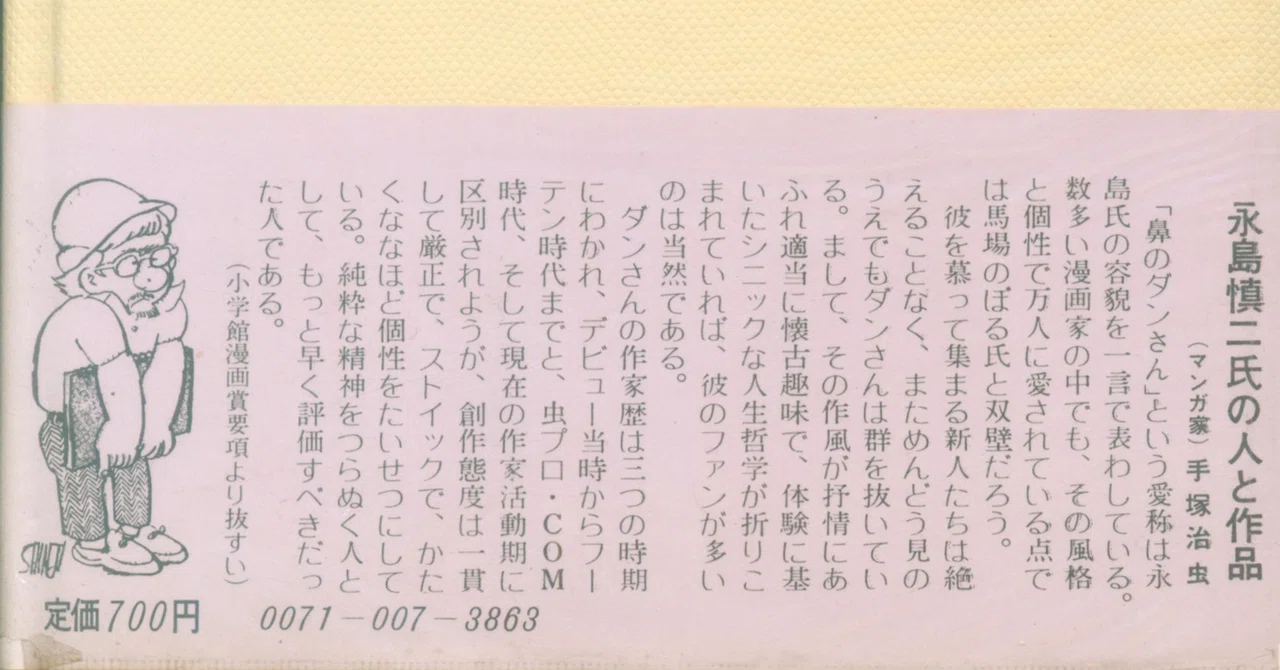 永島慎二氏の人と作品
(マンガ家)手塚治虫
「鼻のダンさん」という愛称は永
島氏の容貌を一言で表わしている。
数多い漫画家の中でも、その風格
と個性で万人に愛されている点で
は馬場のぼる氏と双壁だろう。
彼を慕って集まる新人たちは絶
えることなく、まためんどう見の
うえでもダンさんは群を抜いてい
る。まして、その作風が抒情にあ
ふれ適当に懐古趣味で、体験に基
いたシニックな人生哲学が折りこ
まれていれば、彼のファンが多い
のは当然である。
ダンさんの作家歴は三つの時期
にわかれ、デビュー当時からフー
テン時代までと、虫プロ・COM
時代、そして現在の作家活動期に
区別されようが、創作態度は一貫
して厳正で、ストイックで、かた
くななほど個性をたいせつにして
いる。純粋な精神をつらぬく人と
して、もっと早く評価すべきだっ
た人である。
(小学館漫画賞要項より抜すい)
定価700円
0071-007-3863